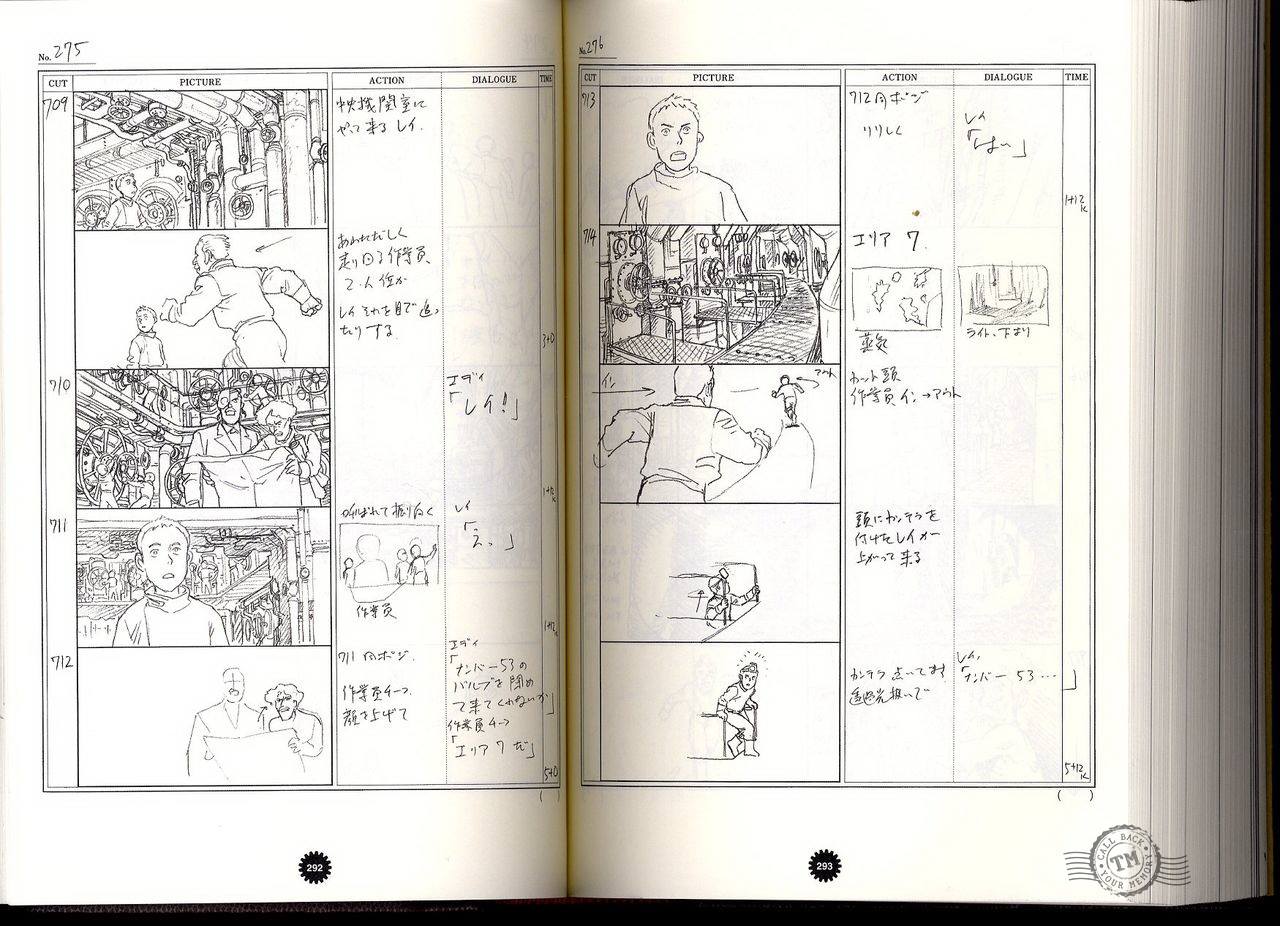 No. 275
CUT PICTURE ACTION DIALOGUE TIME
709
中央機関室に
やって来るレイ.
あわただしく
走り回る作業員
2.人位が
レイ それを目で追っ
たりする
3+0
710
エディ
「レイ!」
1+12
K
711
呼ばれて振り向く
レイ
「え。」
作業員
1+12
K
712
711 同ポジ.
作業員チーフ
顔を上げて
エディ
「ナンバー53の
バルブを閉め
て来てくれないか」
作業員チーフ
「エリア7だ」
5+0
( )
292
No. 276
CUT PICTURE ACTION DIALOGUE TIME
713
712同ポジ
りりしく
レイ
「はい」
1+12
K
714
エリア 7.
蒸気
ライト、下より
イン
アウト
カット頭
作業員イン→アウト
頭にカンテラを
付けたレイが
上がって来る
カンテラ 点いてます
透過光 描いで
レイ
「ナンバー 53…」
5+12
K
( )
293
CALL BACK
TM
YOUR MEMORY